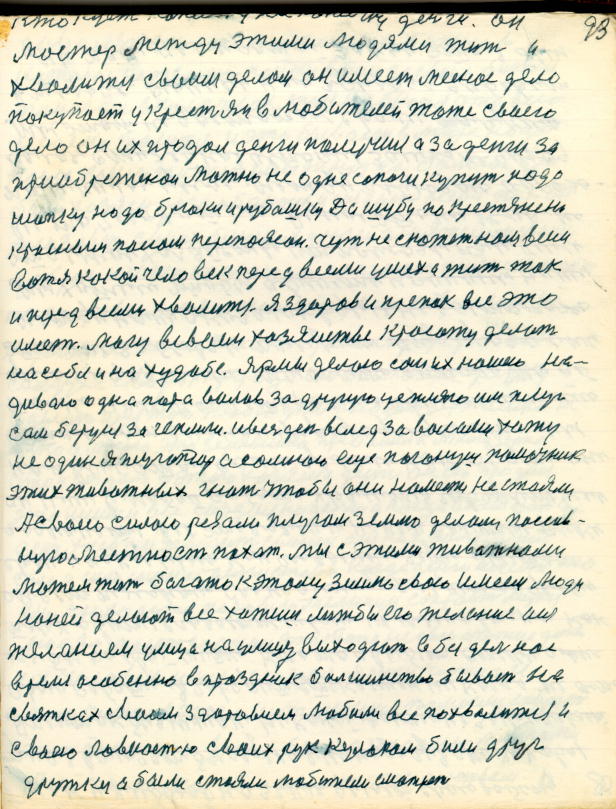 93
деньги. он
мастер между этими людями жит и
хвалится своим делом он имеет мение дело
покупает у Крестяни в любителей тоже своего
дело он их продал денги получил а за денги за
приобретеной можно не одне сапоги купит надо
шапку надо брюки и рубашку да шубу по крестянски
красным поясом перепоясан. чут не скажет нам весм
вот я какой человек перед всеми умеха жит так
и перед всеми хвалится. Я здоров и крепок все это
имет. могу в своем хозяистве красоту делат
на себе и на худобе. ярмы делою сам их ношою на-
диваю одна пара валов за другую цепляю им плуг
сам беруся за чепили. и везде вслед за волами хожу
не один я плуготар а сомною еще погонуч помочник
этих животных гнат чтобы они на месте не стояли
А своею силою резали плугом землю делали посев-
ную местность пахат. мы с этими животными
можем жит богато к этому землю свою имеем люди
на ней делоют все хотели лиж бы его желание ил
желанием улица на улицу выходят в без дел ное
время особенно в праздник болшинство бывает на
святках своим здоровием любили все похвалится и
своею ловкостю своих рук кулаком били друг
дружку а были стояли любители смотрет